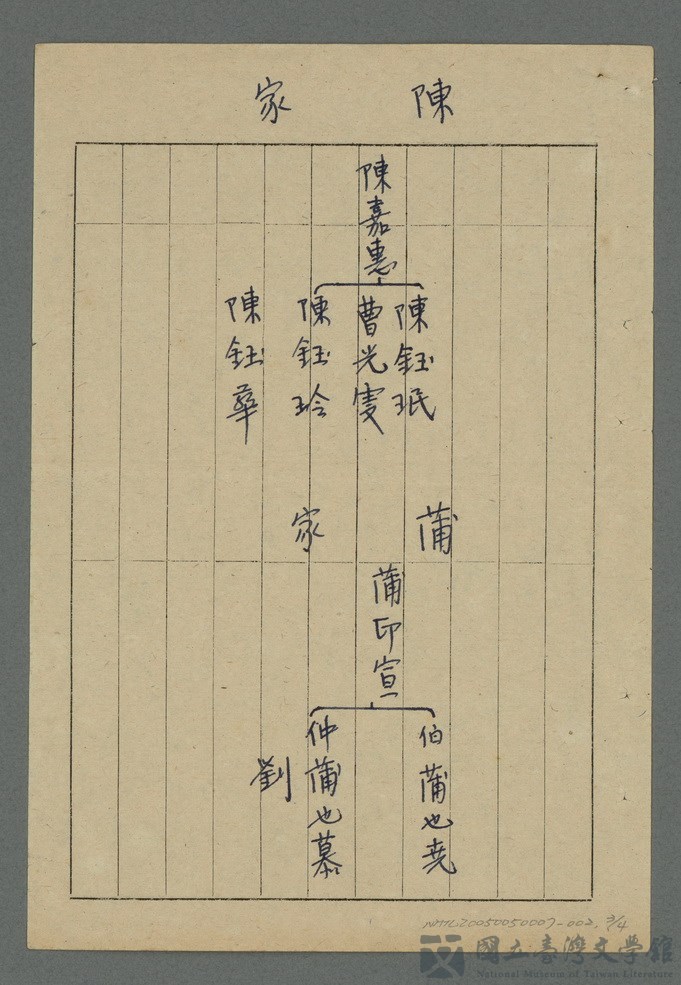 陳家
陳嘉惠
陳鈺珉
曹光雯
陳鈺玲
陳鈺華
蒲家
蒲印宣
伯 蒲也尭
仲蒲也慕
劉
NMTL20050050007-002, 3/4
國立臺灣文學館
National Museum of Taiwan Literature